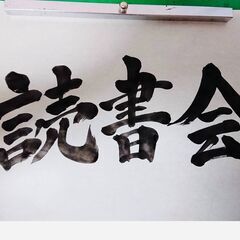 読書会